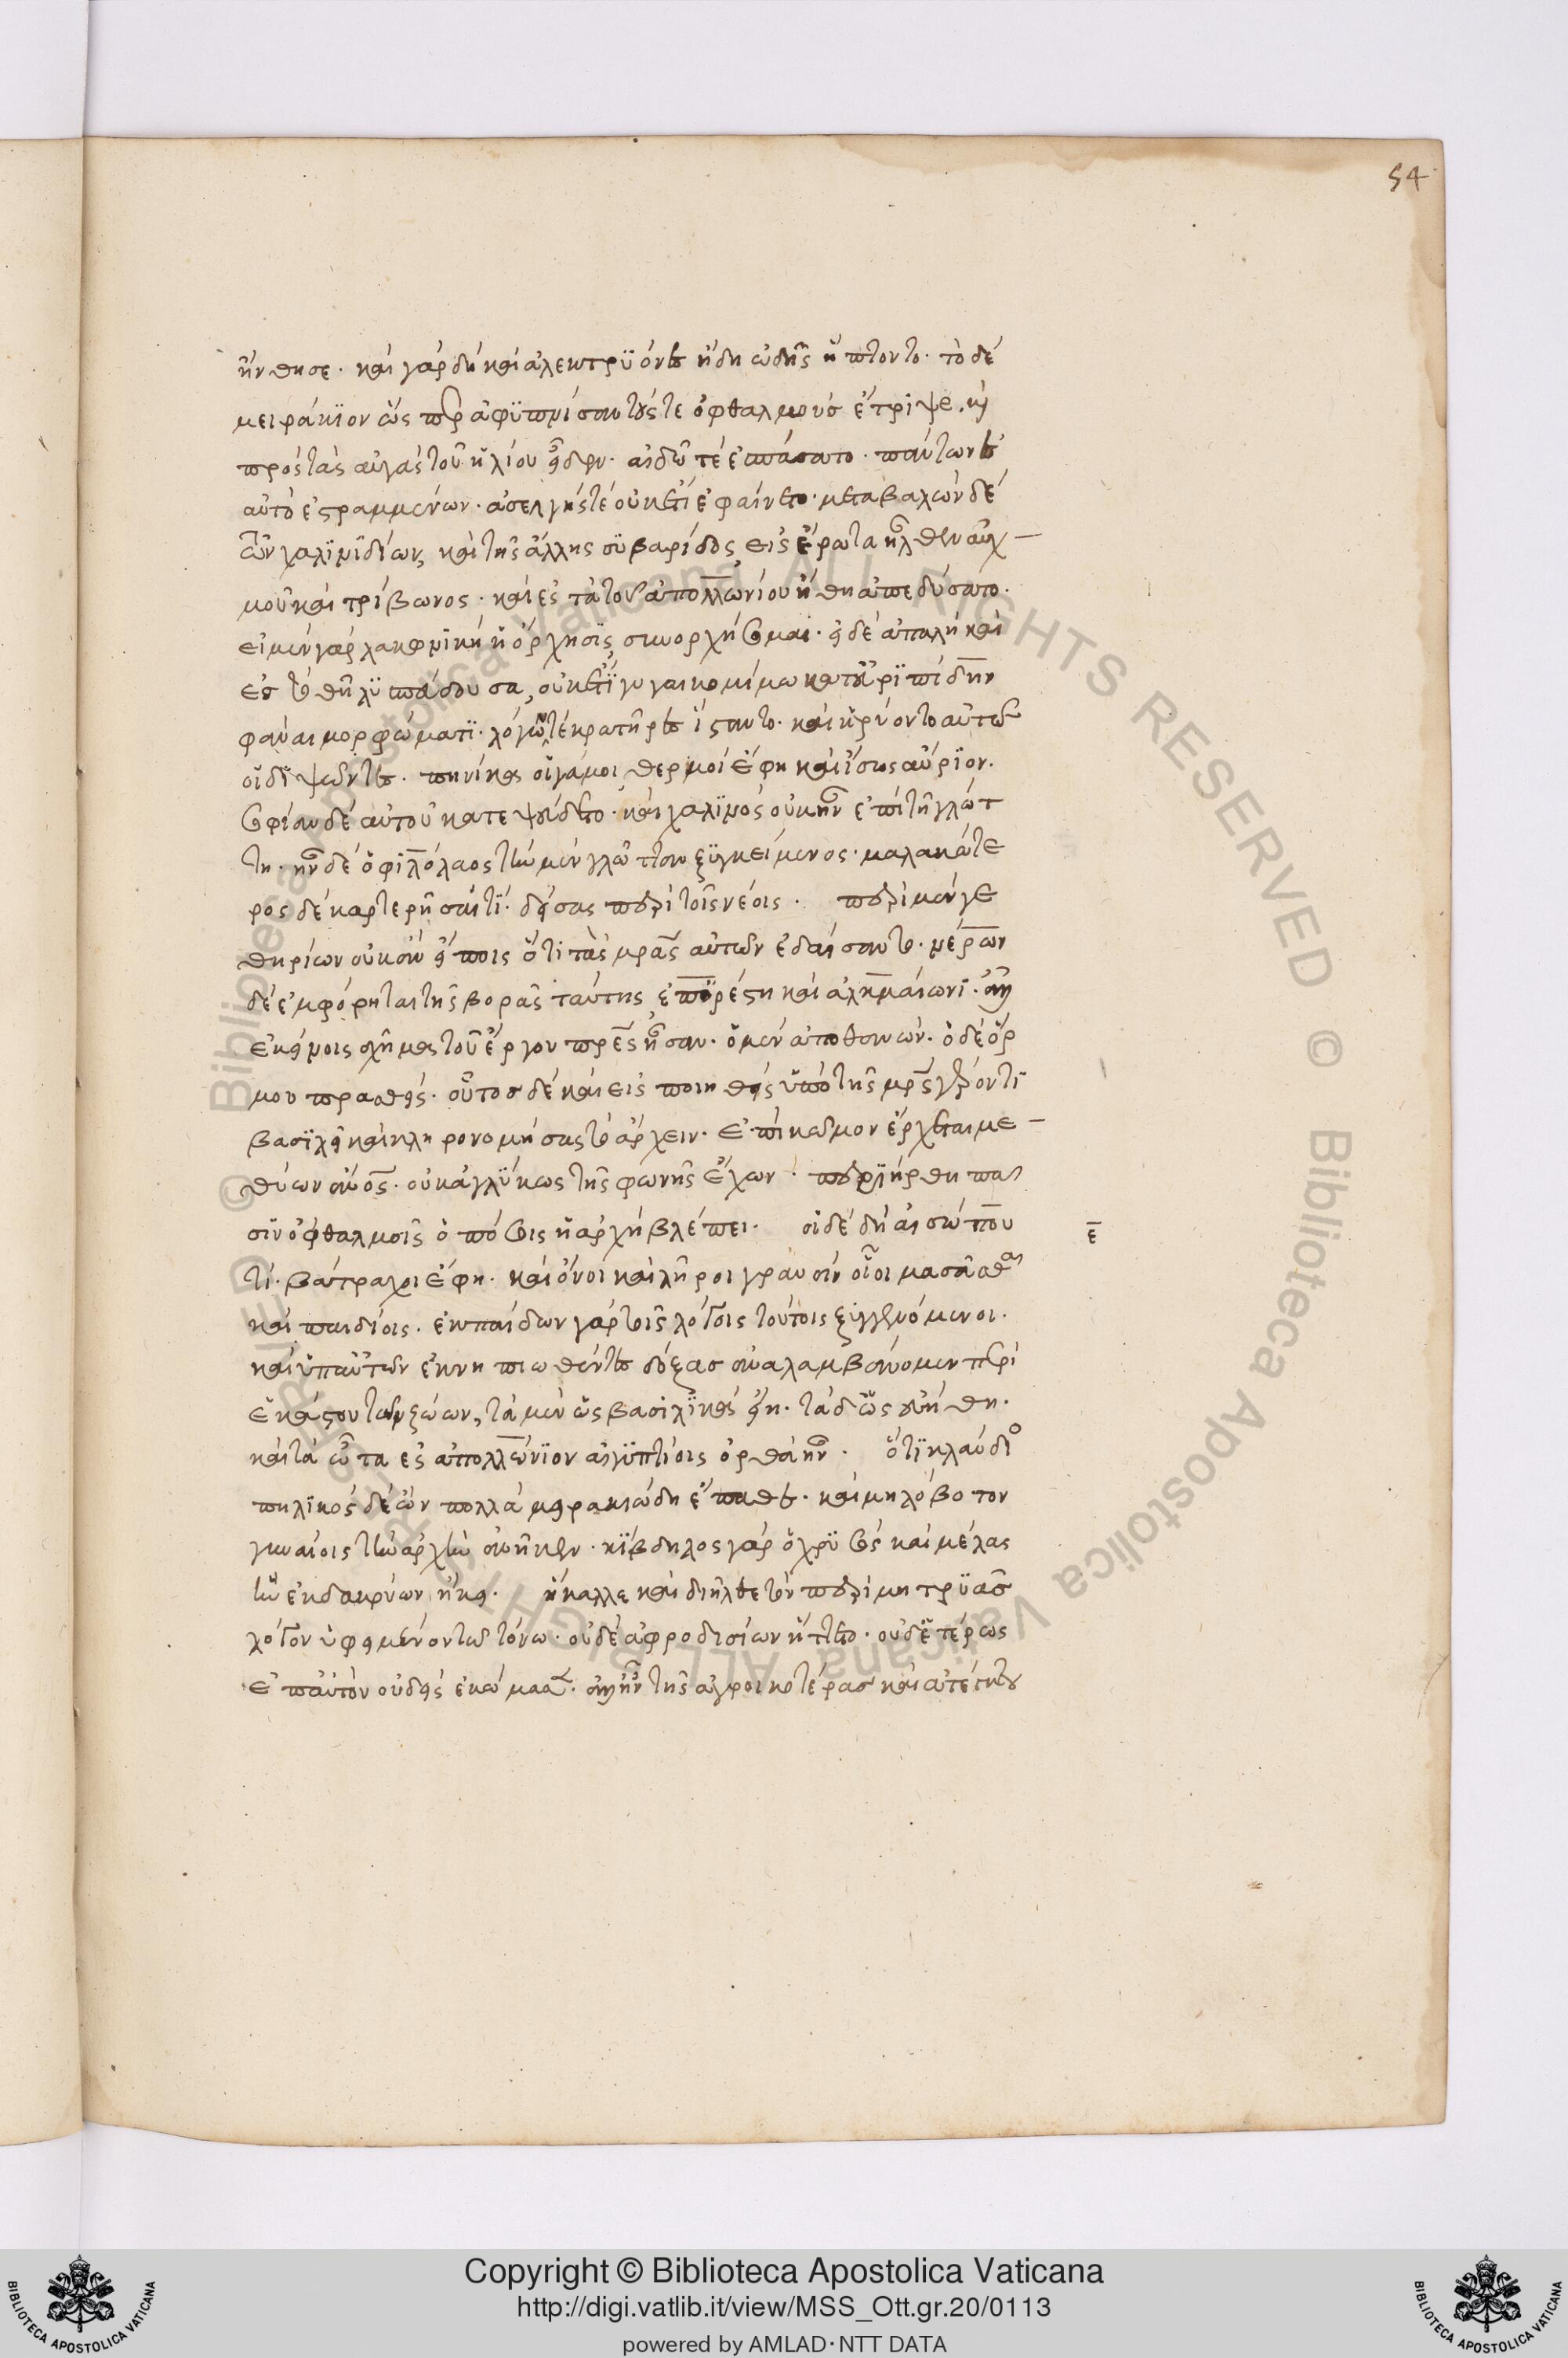 54
ἤνθησε· καὶ γὰρ δὴ καὶ ἀλεκτρυόνες ἤδη ᾠδῆς ἥπτοντο· τὸ δὲ
μειράκιον ὥσπερ ἀφυπνίσαν τούς τε ὀφθαλμοὺς ἔτριψε, καὶ
πρὸς τὰς αὐγὰς τοῦ ἡλίου εἶδεν· αἰδῶ τε ἐσπάσατο· πάντων ἐς
αὐτὸ ἐστραμμένων· ἀσελγές τε οὐκέτι ἐφαίνετο· μεταβαλὼν δὲ
τῶν χλανιδίων, καὶ τῆς ἄλλης συβαρίδος εἰς ἔρωτα ἦλθεν αὐχ
μοῦ καὶ τρίβωνος· καὶ ἐς τὰ τοῦ ἀπολλωνίου ἤθη ἀπεδύσατο·
εἰ μὲν γὰρ λακωνικὴ ἡ ὄρχησις, συνορχήσομαι· εἰ δὲ ἁπαλὴ καὶ
ἐς τὸ θῆλυ σπεύδουσα, οὐκέτι
φᾶναι μορφώματι· λόγων τε κρατῆρες ἵσταντο· καὶ ἠρύοντο αὐτῶν
οἱ διψῶντες· πηνίκα οἱ γάμοι, θερμοὶ ἔφη καὶ ἴσως αὔριον·
σοφίαν δὲ αὐτοῦ κατεψεύδετο· καὶ χαλινὸς οὐκ ἦν ἐπὶ τῇ γλώτ
τῃ· ἦν δὲ ὁ φιλόλαος τὴν μὲν γλῶτταν ξυγκείμενος· μαλακώτε
ρος δὲ καρτερῆσαί τι· δείσας περὶ τοῖς νέοις· περὶ μέν γε
θηρίων οὐκ ἂν εἴποις ὅτι τὰς μητέρας αὐτῶν ἐδαίσαντο·
δὲ ἐμφόρηται τῆς βορᾶς ταύτης, ἐπ' ὀρέστῃ καὶ ἀλκμαίωνι· ἀλλ'
ἐκείνοις σχῆμα τοῦ ἔργου πατέρες ἦσαν· ὁ μὲν ἀποθανών· ὁ δὲ ὅρ
μου πραθείς· οὗτος δὲ καὶ εἰσποιηθεὶς ὑπὸ τῆς μητρὸς γέροντι
βασιλεῖ καὶ κληρονομήσας τὸ ἄρχειν· ἐπὶ κῶμον ἔρχεται με
θύων ἄνθρωπος· οὐκ ἀγλυκῶς τῆς φωνῆς ἔχων· περιήρθη πᾶ
σιν ὀφθαλμοῖς ὁπόσοις ἡ ἀρχὴ βλέπει· οἱ δὲ δὴ αἰσώπου
ε
τί· βάτραχοι ἔφη· καὶ ὄνοι καὶ λῆροι γραυσὶν οἷοι μασᾶσθαι
καὶ παιδίοις· ἐκ παίδων γὰρ τοῖς λόγοις τούτοις ξυγγενόμενοι·
καὶ ὑπ' αὐτῶν ἐκνηπιωθέντες δόξας ἀναλαμβάνομεν περὶ
ἑκάστου τῶν ζώων, τὰ μὲν ὡς βασιλικὰ εἴη· τὰ δ' ὡς εὐήθη·
καὶ τὰ ὦτα ἐς ἀπολλώνιον αἰγυπτίοις ὀρθὰ ἦν· ὅτι κλαύδιος
τηλικόσδε ὢν πολλὰ μειρακιώδη ἔπαθε· καὶ μηλόβοτον
γυναίοις τὴν ἀρχὴν ἀνῆκεν· κίβδηλος γὰρ ὁ χρυσὸς καὶ μέλας
ἢν ἐκ δακρύων ἥκῃ· ἤκαλλε καὶ διῆλθε τὸν περὶ μητρυᾶς
λόγον ὑφειμένον τῷ τόνῳ· οὐδὲ ἀφροδισίων ἥττητο· οὐδ' ἑτέρως
ἐπ' αὐτὸν οὐδεὶς ἐκώμασεν· ἀλλ' ἦν τῆς ἀγροικοτέρας καὶ ἀτέγκτου
Copyright © Biblioteca Apostolica Vaticana
http://digi.vatlib.it/view/MSS_Ott.gr.20/0113
powered by AMLAD·NTT DATA
BIBLIOTECA APOSTOLICA VATICANA
BIBLIOTECA APOSTOLICA VATICANA
© Biblioteca Apostolica Vaticana ALL RIGHTS RESERVED
© Biblioteca Apostolica Vaticana ALL RIGHTS RESERVED